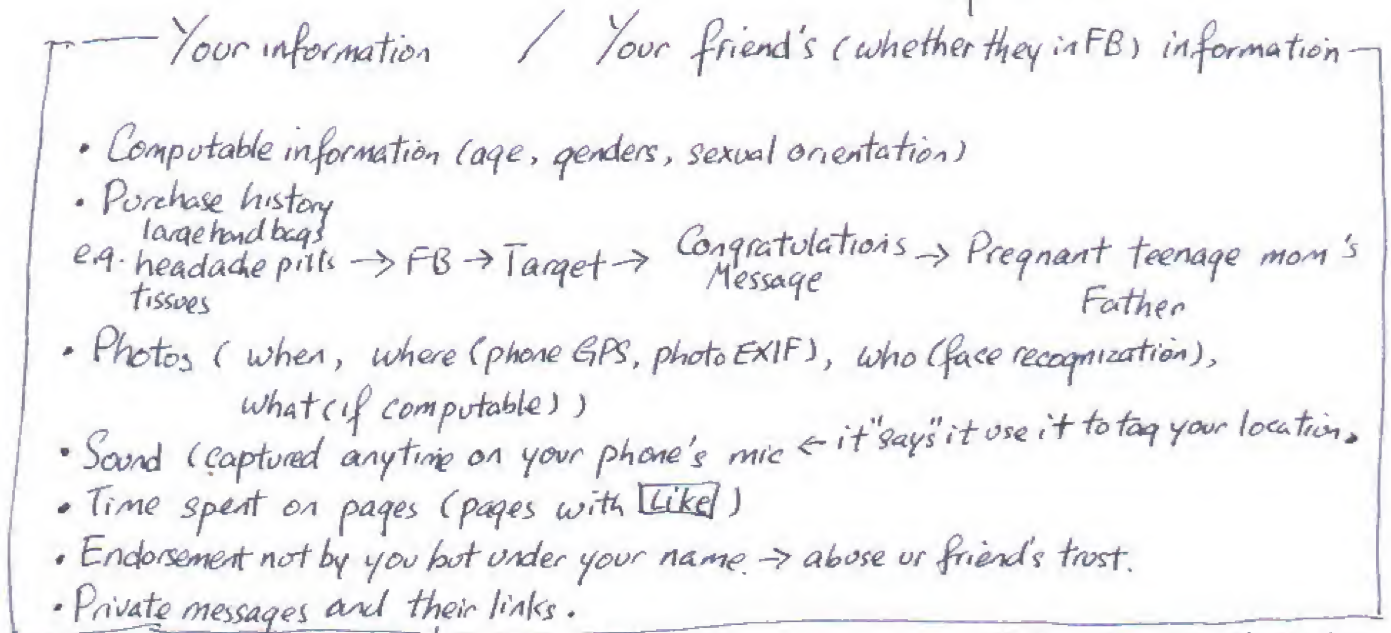 Your information / Your friend's (whether they in FB) information
• Computable information (age, genders, sexual orientation)
• Purchase history
large hand bags
e.g. headache pills → FB → Target → Congratulations Message → Pregnant teenage mom's Father
tissues
• Photos ( when, where (phone GPS, photo EXIF), who (face recognization),
what (if computable) )
• Sound (captured anytime on your phone's mic ← it "says" it use it to tag your location.
• Time spent on pages (pages with Like )
• Endorsement not by you but under your name. → abuse ur friend's trust.
• Private messages and their links.